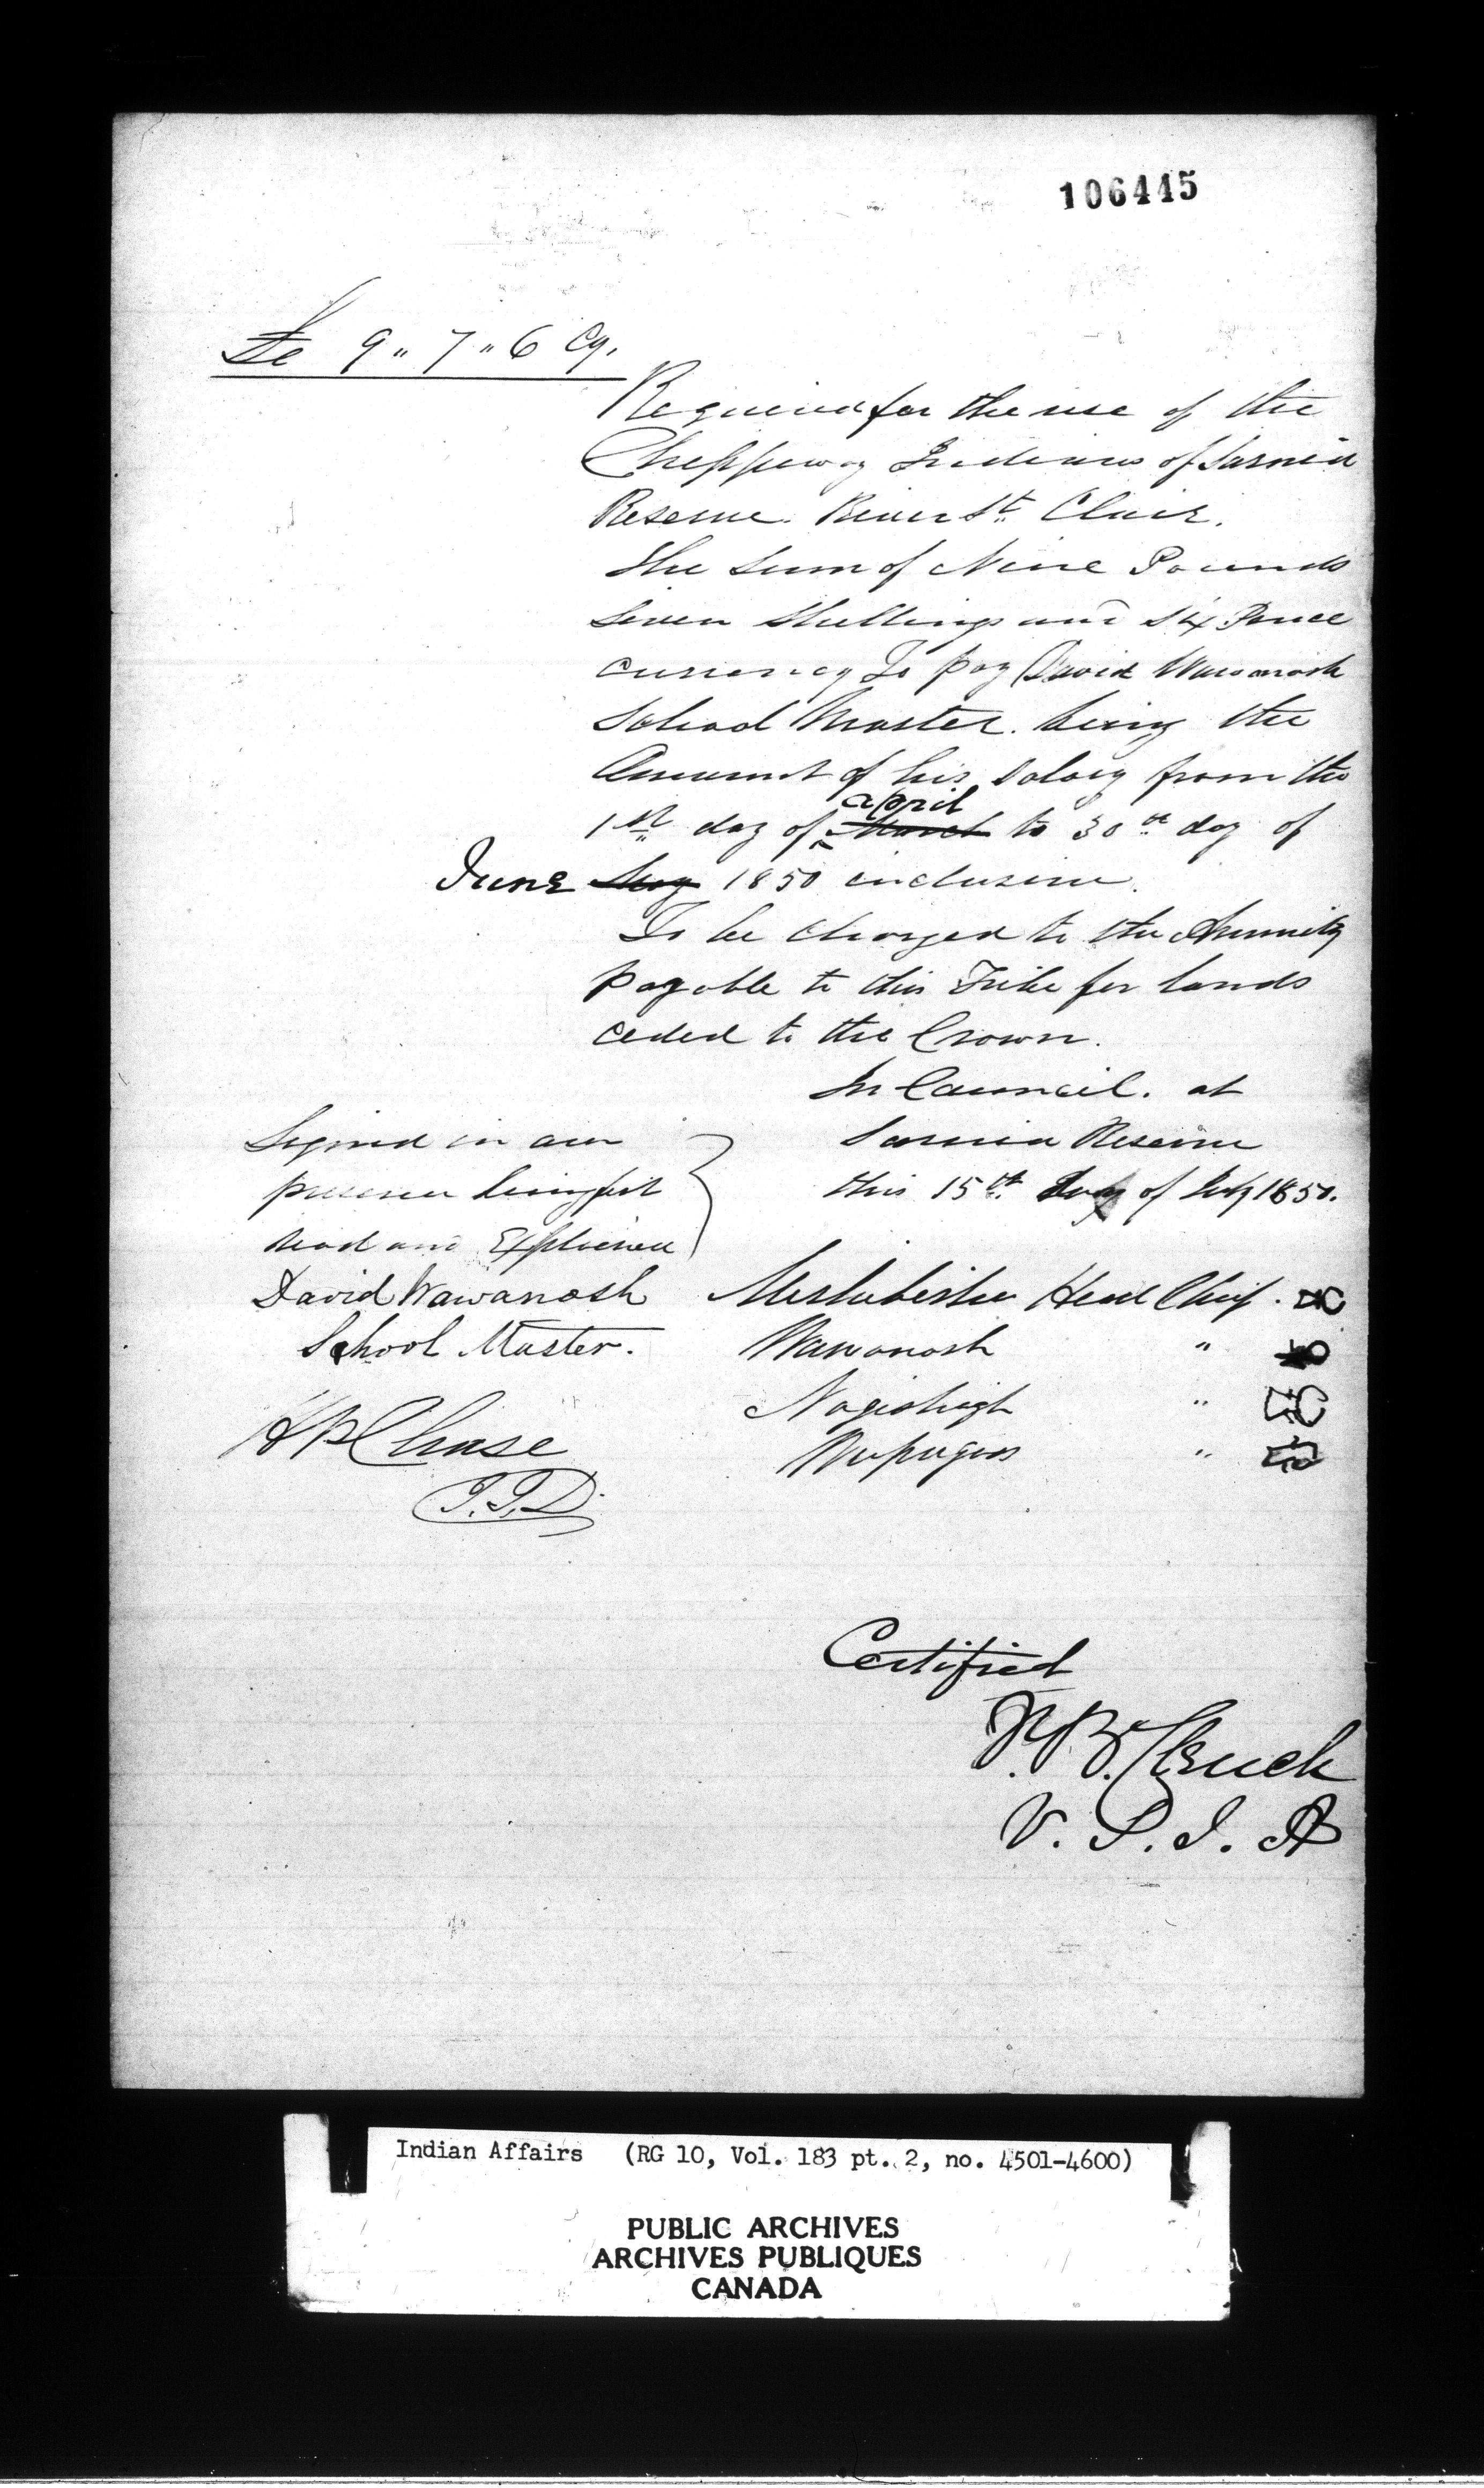 106445
£ 9 " 7 " 6 Cy.
Required for the use of the
Cheppeway Indians of Sarnia
Reserve. River St. Clair.
The Sum of Nine Pounds
Seven Shillings and Six Pence
currency To pay David Wawanosh
School Master. being the
Amount of his Salary from the
april
1st day of March to 30th day of
June May 1850 inclusive.
To be charged to the Annuity
payable to this Tribe for lands
ceded to the Crown.
In Council. at
Sarnia Reserve
this 15th day of July 1850.
Signed in our
presence being first
read and Explained
David Wawanosh
School Master.
H P Chase
I.I.D.
Head Chief.
Wawanosh "
"
"
Certified
Cluck
V. S. I. A
Indian Affairs (RG 10, Vol. 183 pt. 2, no. 4501-4600)
PUBLIC ARCHIVES
ARCHIVES PUBLIQUES
CANADA